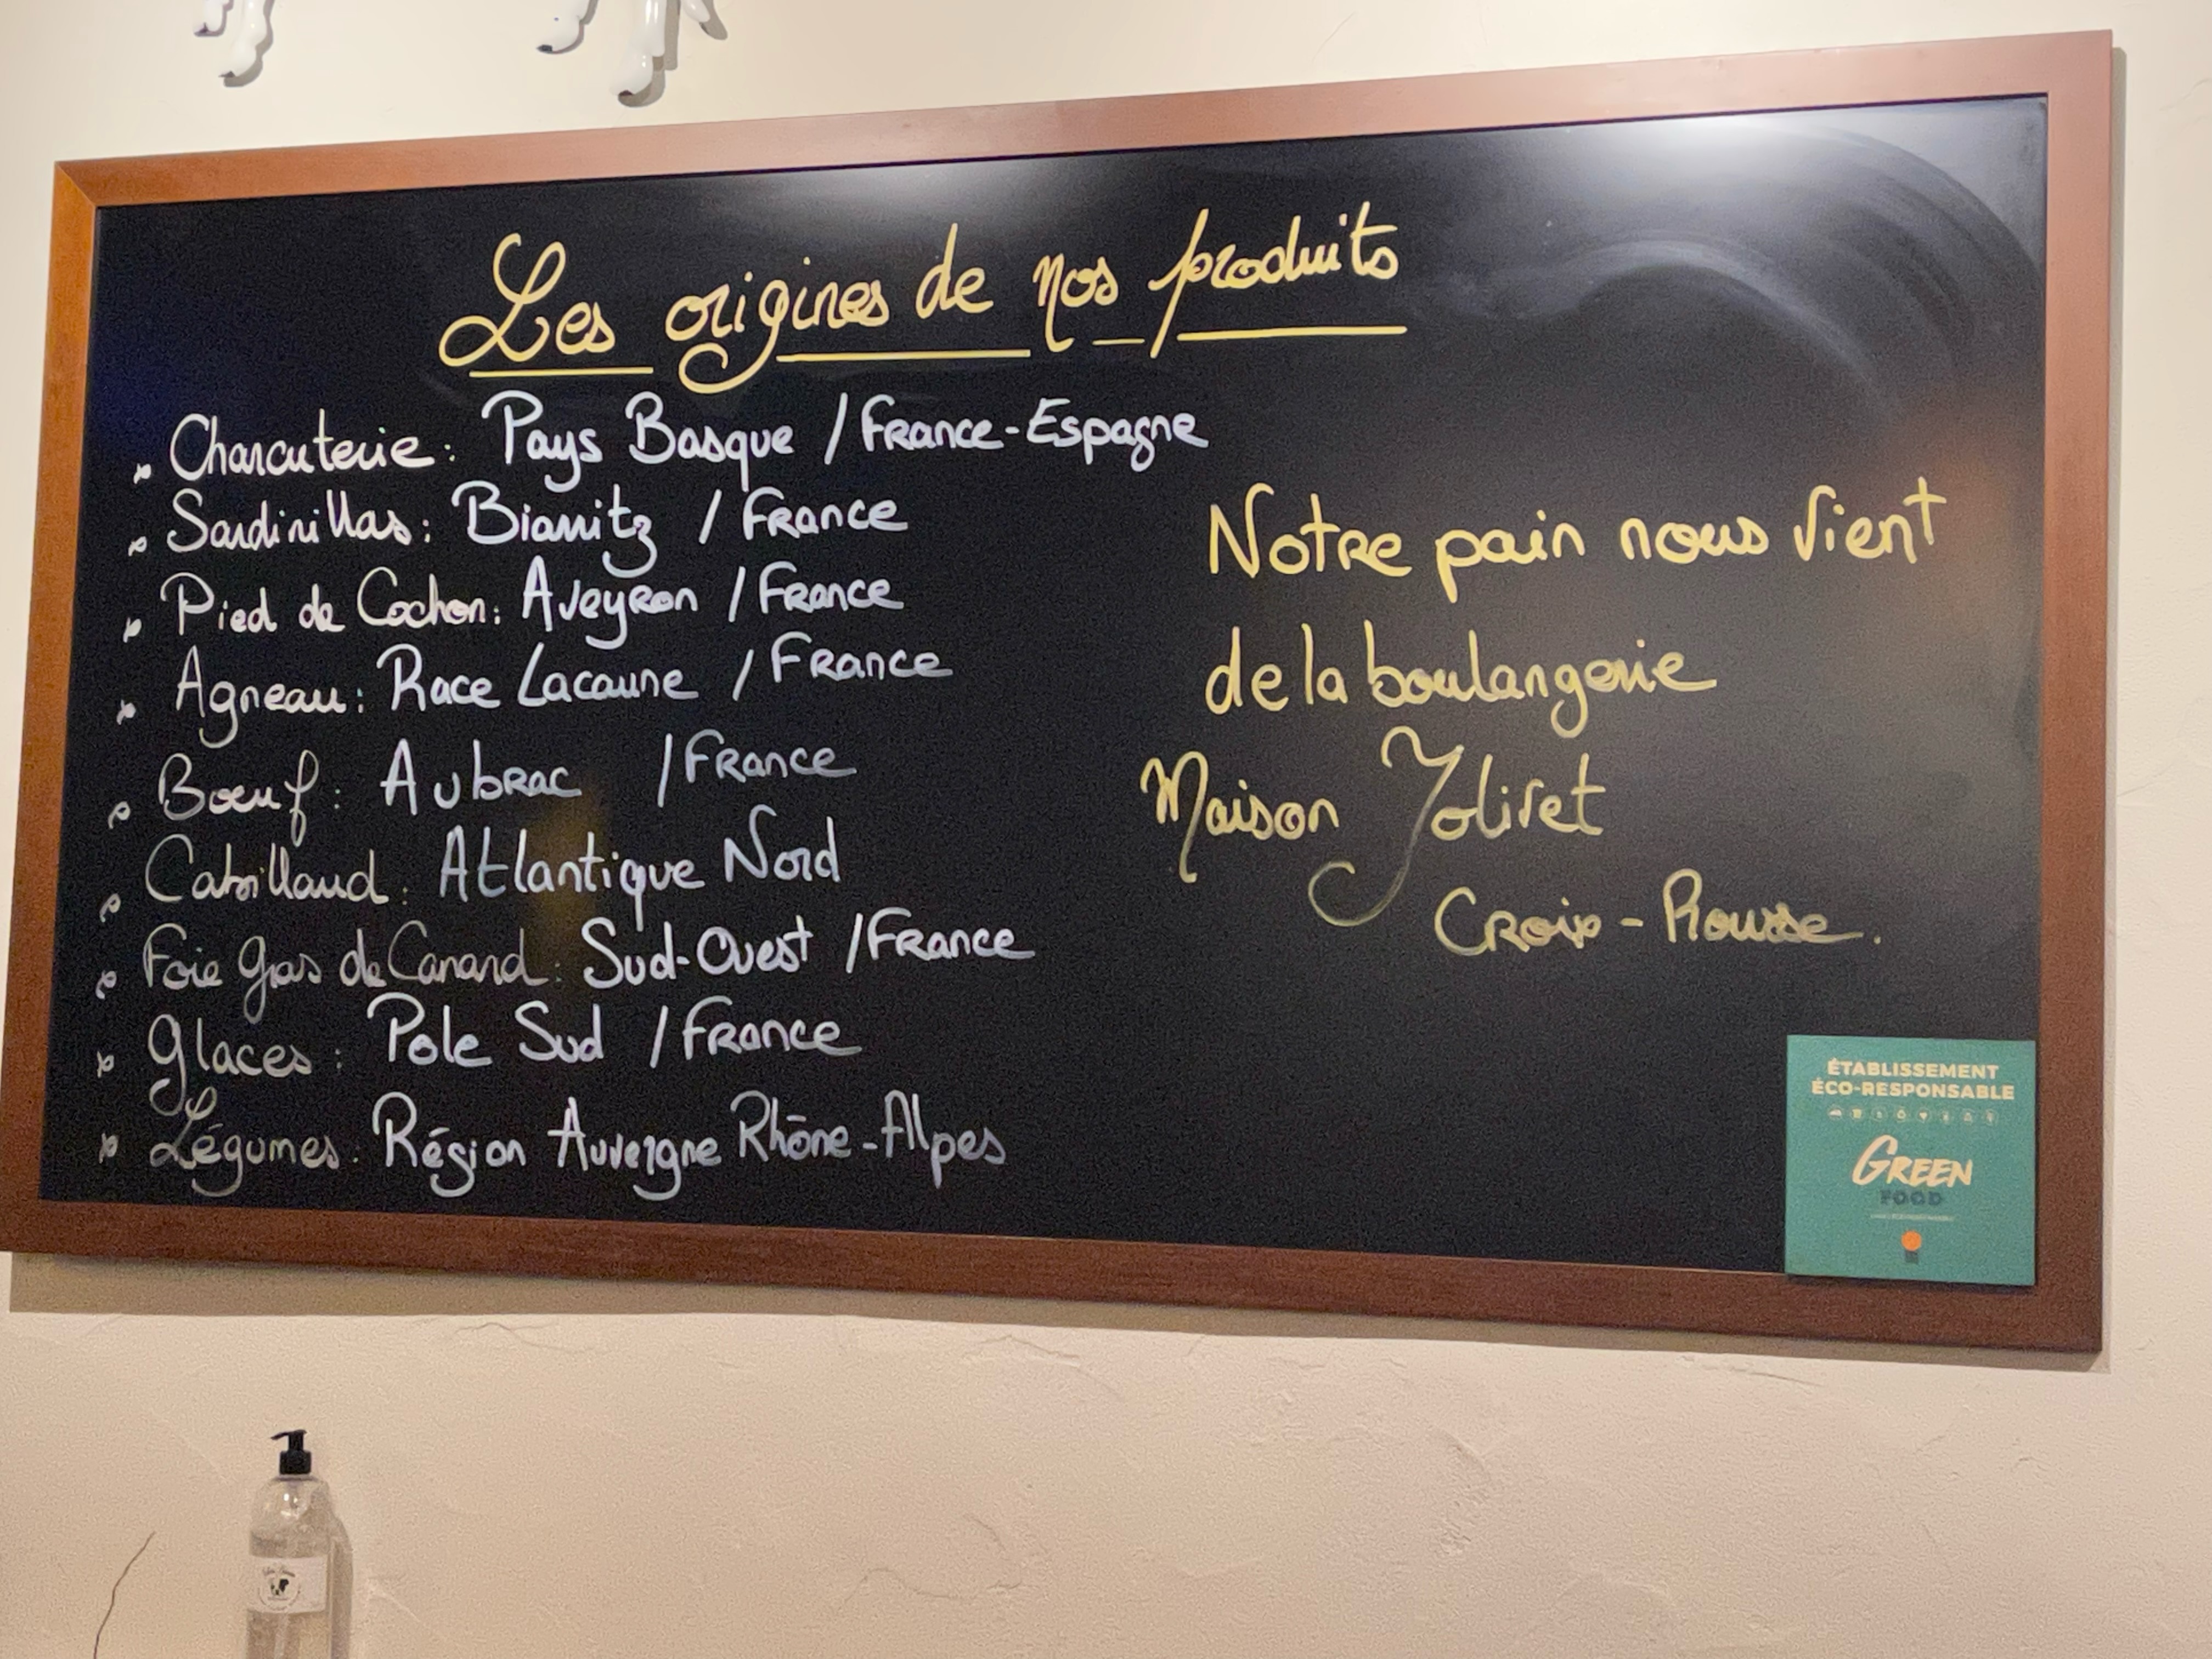 Les origines de nos produits
Charcuterie : Pays Basque / France-Espagne
Sardinillas : Biarritz / France
Pied de Cochon : Aveyron / France
Agneau : Race Lacaune / France
Boeuf : Aubrac / France
Cabillaud : Atlantique Nord
Foie gras de Canard : Sud-Ouest / France
Glaces : Pole Sud / France
Légumes : Région Auvergne Rhône-Alpes
Notre pain nous vient
de la boulangerie
Maison Jolivet
Croix-Rousse.
ÉTABLISSEMENT
ÉCO-RESPONSABLE
GREEN
FOOD